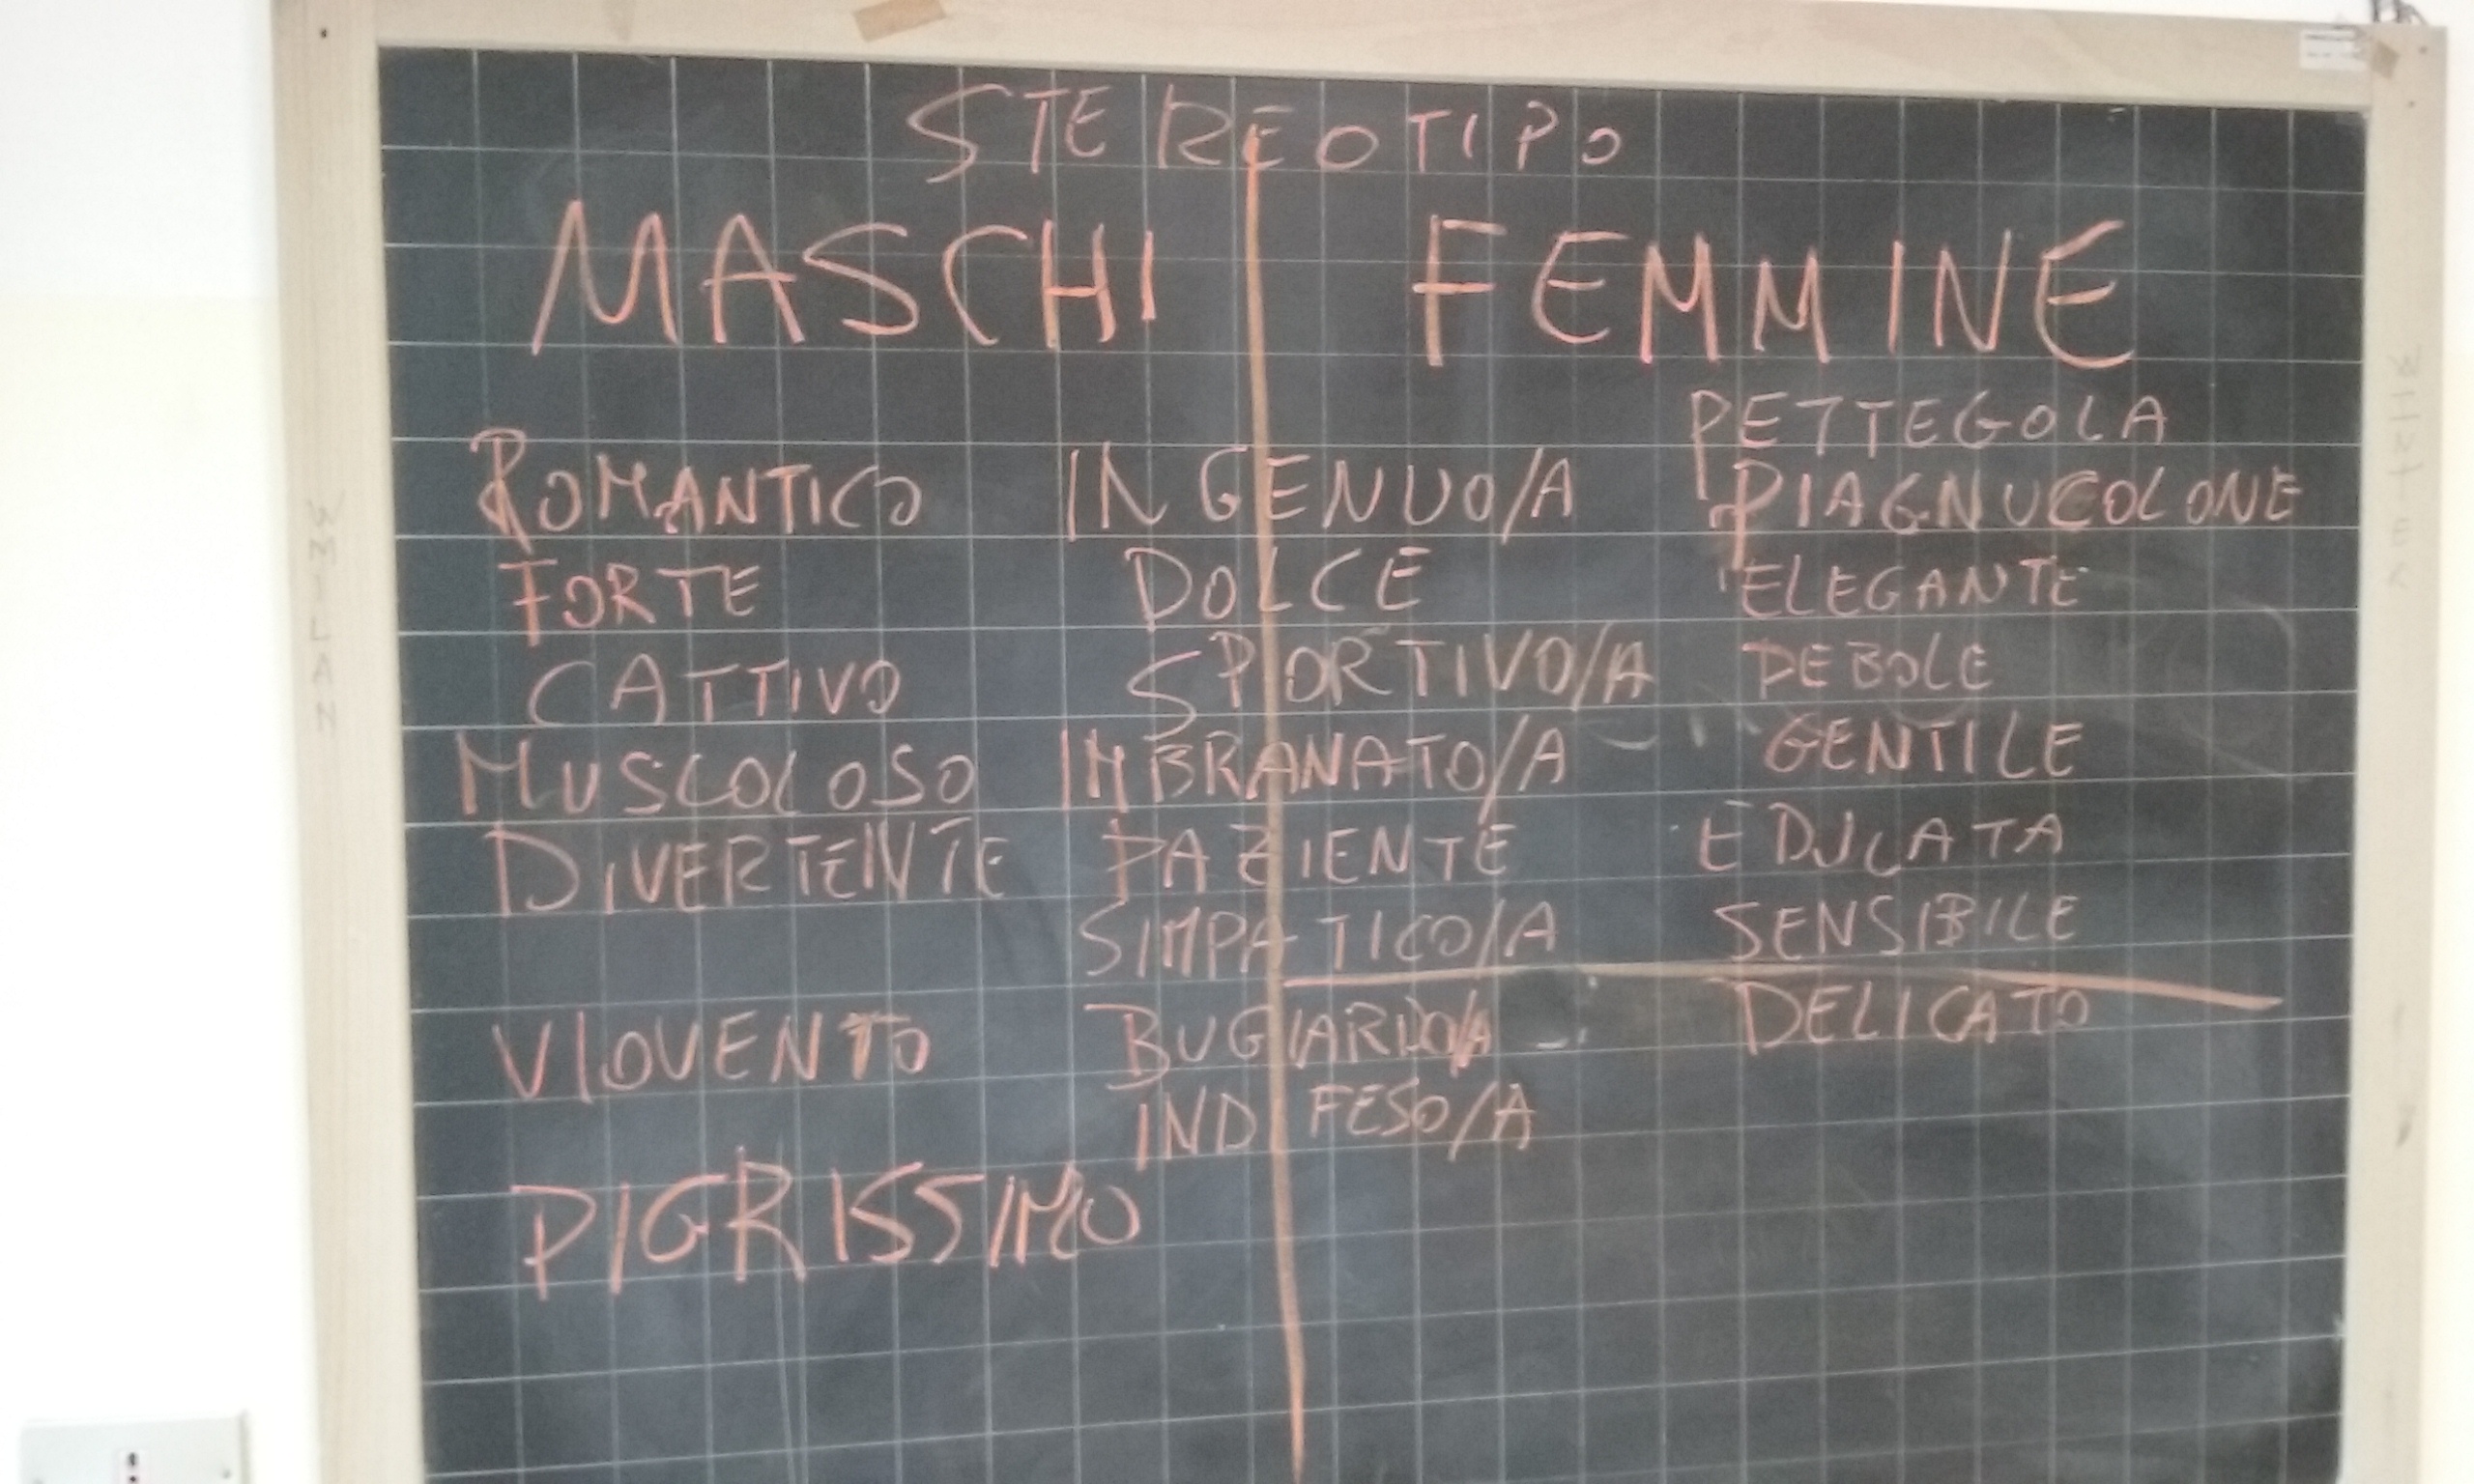 STEREOTIPO
MASCHI FEMMINE
PETTEGOLA
ROMANTICO INGENUO/A PIAGNUCOLONE
FORTE DOLCE ELEGANTE
CATTIVO SPORTIVO/A DEBOLE
MUSCOLOSO IMBRANATO/A GENTILE
DIVERTENTE PAZIENTE EDUCATA
SIMPATICO/A SENSIBILE
VIOVENTO BUGIARDO/A DELICATO
INDIFESO/A
PIGRISSIMO
MILAN